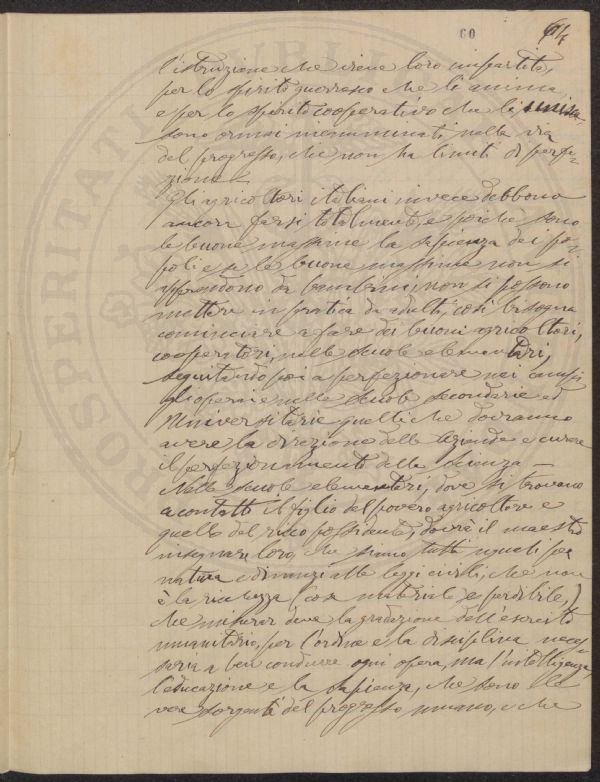 60
64
l'istruzione che viene loro impartita,
per lo spirito guerresco che li anima
e per lo spirito cooperativo che li
sono ormai incamminati nella via
del progresso, che non ha limiti di perfe-
zione.
Gli agricoltori italiani invece debbono
ancora farsi totalmente, e poiché sono
le buone massime la sapienza dei po-
poli e se le buone massime non si
apprendono da bambini, non si possono
mettere in pratica da adulti, così bisogna
cominciare a fare dei buoni agricoltori,
cooperatori, nelle scuole elementari,
seguitando poi a perfezionare nei campi
gli operai e nelle scuole secondarie ed
Universitarie quelli che dovranno
avere la direzione delle aziende e curare
il perfezionamento della scienza —
Nelle scuole elementari, dove si trovano
a contatto il figlio del povero agricoltore e
quello del ricco possidente, dovrà il maestro
insegnare loro, che siamo tutti uguali per
natura e dinanzi alle leggi civili, che non
è la ricchezza (cosa materiale e perdibile,)
che misurar deve la gradazione dell'esercito
umanitario, per l'ordine e la disciplina neces-
saria a ben condurre ogni opera, ma l'intelligenza,
l'educazione e la sapienza, che sono le
vere sorgenti del progresso umano, e che
ROSPERI RATI UBLI